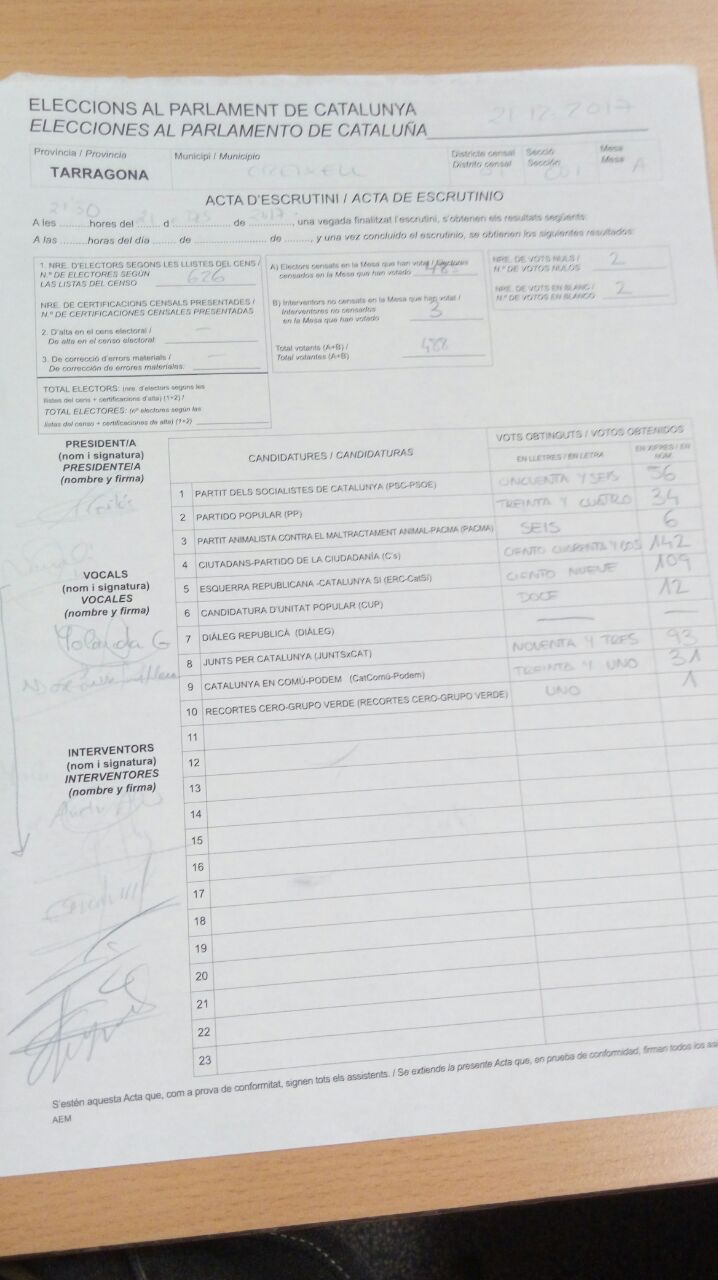 ELECCIONS AL PARLAMENT DE CATALUNYA
ELECCIONES AL PARLAMENTO DE CATALUÑA
21.12.2017
Província / Provincia
TARRAGONA
Municipi / Municipio
CREIXELL
Districte censal
Distrito censal
01
Secció
Sección
001
Mesa
Mesa
A
ACTA D'ESCRUTINI / ACTA DE ESCRUTINIO
A les 21'30 hores del 21 d DES de 2017, una vegada finalitzat l'escrutini, s'obtenen els resultats següents:
A las ..........horas del día ....... de ...................... de ........, y una vez concluido el escrutinio, se obtienen los siguientes resultados:
1. NRE. D'ELECTORS SEGONS LES LLISTES DEL CENS /
N.º DE ELECTORES SEGÚN
LAS LISTAS DEL CENSO 626
NRE. DE CERTIFICACIONS CENSALS PRESENTADES /
N.º DE CERTIFICACIONES CENSALES PRESENTADAS
2. D'alta en el cens electoral /
De alta en el censo electoral: —
3. De correcció d'errors materials /
De corrección de errores materiales: —
TOTAL ELECTORS: (nre. d'electors segons les
llistes del cens + certificacions d'alta) (1+2) /
TOTAL ELECTORES: (nº electores según las
listas del censo + certificaciones de alta) (1+2)
A) Electors censats en la Mesa que han votat / Electores
censados en la Mesa que han votado
B) Interventors no censats en la Mesa que han votat /
Interventores no censados
en la Mesa que han votado 3
Total votants (A+B) /
Total votantes (A+B) 488
NRE. DE VOTS NULS /
N.º DE VOTOS NULOS 2
NRE. DE VOTS EN BLANC /
N.º DE VOTOS EN BLANCO 2
PRESIDENT/A
(nom i signatura)
PRESIDENTE/A
(nombre y firma)
VOCALS
(nom i signatura)
VOCALES
(nombre y firma)
Yolanda G
INTERVENTORS
(nom i signatura)
INTERVENTORES
(nombre y firma)
CANDIDATURES / CANDIDATURAS
VOTS OBTINGUTS / VOTOS OBTENIDOS
EN LLETRES / EN LETRA
EN XIFRES / EN NÚM.
1 PARTIT DELS SOCIALISTES DE CATALUNYA (PSC-PSOE) CINCUENTA Y SEIS 56
2 PARTIDO POPULAR (PP) TREINTA Y CUATRO 34
3 PARTIT ANIMALISTA CONTRA EL MALTRACTAMENT ANIMAL-PACMA (PACMA) SEIS 6
4 CIUTADANS-PARTIDO DE LA CIUDADANÍA (C's) CIENTO CUARENTA Y DOS 142
5 ESQUERRA REPUBLICANA -CATALUNYA SÍ (ERC-CatSí) CIENTO NUEVE 109
6 CANDIDATURA D'UNITAT POPULAR (CUP) DOCE 12
7 DIÀLEG REPUBLICÀ (DIÀLEG) — —
8 JUNTS PER CATALUNYA (JUNTSxCAT) NOVENTA Y TRES 93
9 CATALUNYA EN COMÚ-PODEM (CatComú-Podem) TREINTA Y UNO 31
10 RECORTES CERO-GRUPO VERDE (RECORTES CERO-GRUPO VERDE) UNO 1
11
12
13
14
15
16
17
18
19
20
21
22
23
S'estén aquesta Acta que, com a prova de conformitat, signen tots els assistents. / Se extiende la presente Acta que, en prueba de conformidad, firman todos los
AEM